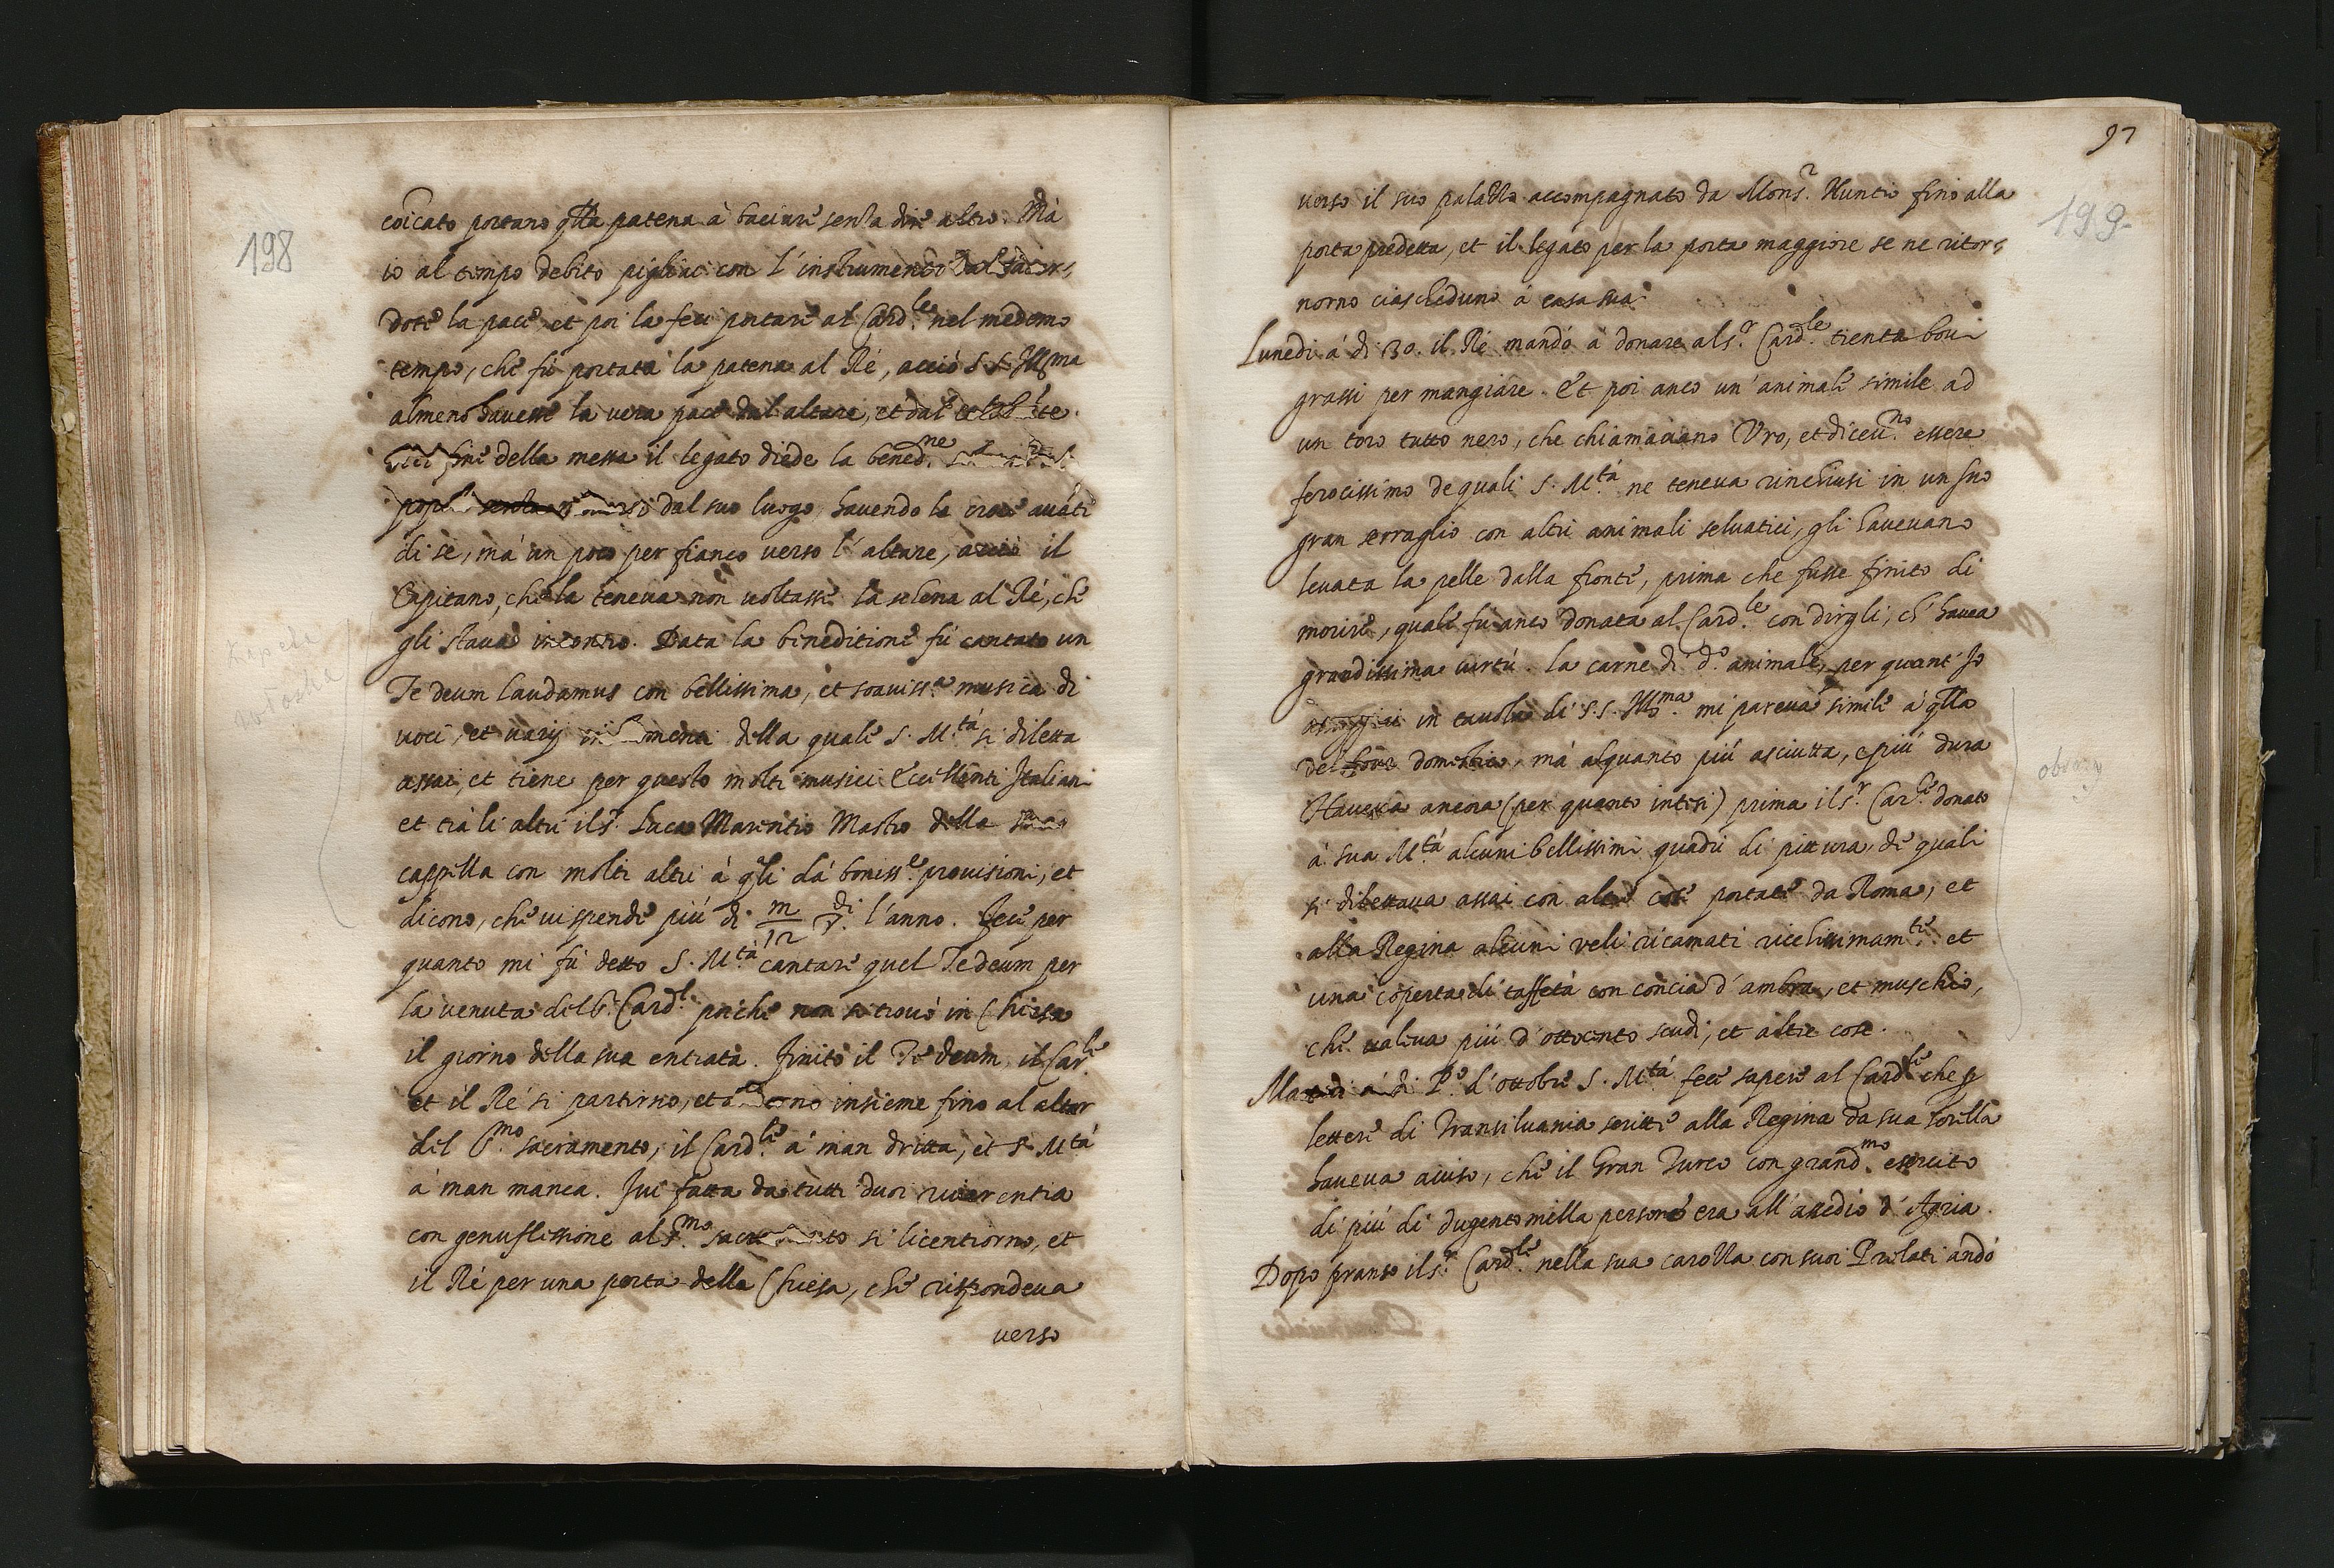 198
coīcato portaro qlla patena à baciare senza dire altro. Mà
io al tempo debito pigliai con l'instrumento dal sacer,
dote la pace, et poi la feci portare al Card.le nel medemo
tempo, che fù portata la patena al Rè, acciò S. S. Ill.ma
almeno havesse la vera pace dal altare, et dal celebrāte.
fine della messa il legato diede la bened.ne
dal suo luogo, havendo la croce avāti
di se, mà un poco per fianco verso l'altare, acciò il
Capitano, che la teneva non voltasse la schena al Rè, che
gli stava incontro. Data la beneditione fù cantato un
Te deum laudamus con bellissima, et soaviss.a musica di
voci, et varij instrumenti della quale S. M.tà si diletta
assai, et tiene per questo molti musici Eccellenti Italiani
et trà li altri il s.r Luca Marentio Mastro della sua
cappella con molti altri à qli dà boniss.e provisioni, et
dicono, che vi spende più di m/12 ▽.di l'anno. Fece per
quanto mi fù detto S. M.tà cantare quel Te deum per
la venuta del S.r Card.l poiche non si trovò in Chiesa
il giorno della sua entrata. Finito il Te deum, il Car.le
et il Rè si partirno, et andorno insieme fino al altar
del S.mo sacramento, il Card.le à man dritta, et S. M.tà
à man manca. Ivi fatta da tutti duoi riverentia
con genuflessione al S.mo sacramento si licentiorno, et
il Rè per una porta della Chiesa, che rispondeva
verso
Kapela
włoska
97
199
verso il suo palazzo accompagnato da Mons.r Nuntio fino alla
porta predetta, et il legato per la porta maggiore se ne ritor,
norno ciascheduno à casa sua.
Lunedi à di 30. il Rè mandò à donare al s.r Card.le trenta bovi
grassi per mangiare. Et poi anco un' animale simile ad
un toro tutto nero, che chiamavano Uro, et dicev.no essere
ferocissimo de quali S. M.tà ne teneva rinchiusi in un suo
gran serraglio con altri animali selvatici, gli havevano
levata la pelle dalla fronte, prima che fusse finito di
morire, quale fù anco donata al Card.le con dirgli, ch' havea
grandissima virtù. la carne di d.o animale, per quant' Io
in tavola di S. S. Ill.ma mi pareva simile à qlla
del bove domestico, mà alquanto più asciutta, e più dura
Haveva ancora (per quanto intesi) prima il s.r Car.le donato
à sua M.tà alcuni bellissimi quadri di pittura, de quali
si dilettava assai con altre cose portate da Roma, et
alla Regina alcuni veli ricamati ricchissimam.te et
una coperta di taffetà con concia d'ambra, et muschio,
che valeva più d'ottocento scudi, et altre cose.
Martedi à di P.o d'ottobre S. M.tà fece sapere al Card.le che p
lettere di Transilvania scritte alla Regina da sua sorella
haveva aviso, che il Gran Turco con grand.mo esercito
di più di dugento milla persone era all'assedio d'Agria.
Dopo pranso il s.r Card.le nella sua carozza con suoi Prelati andò
obrazy